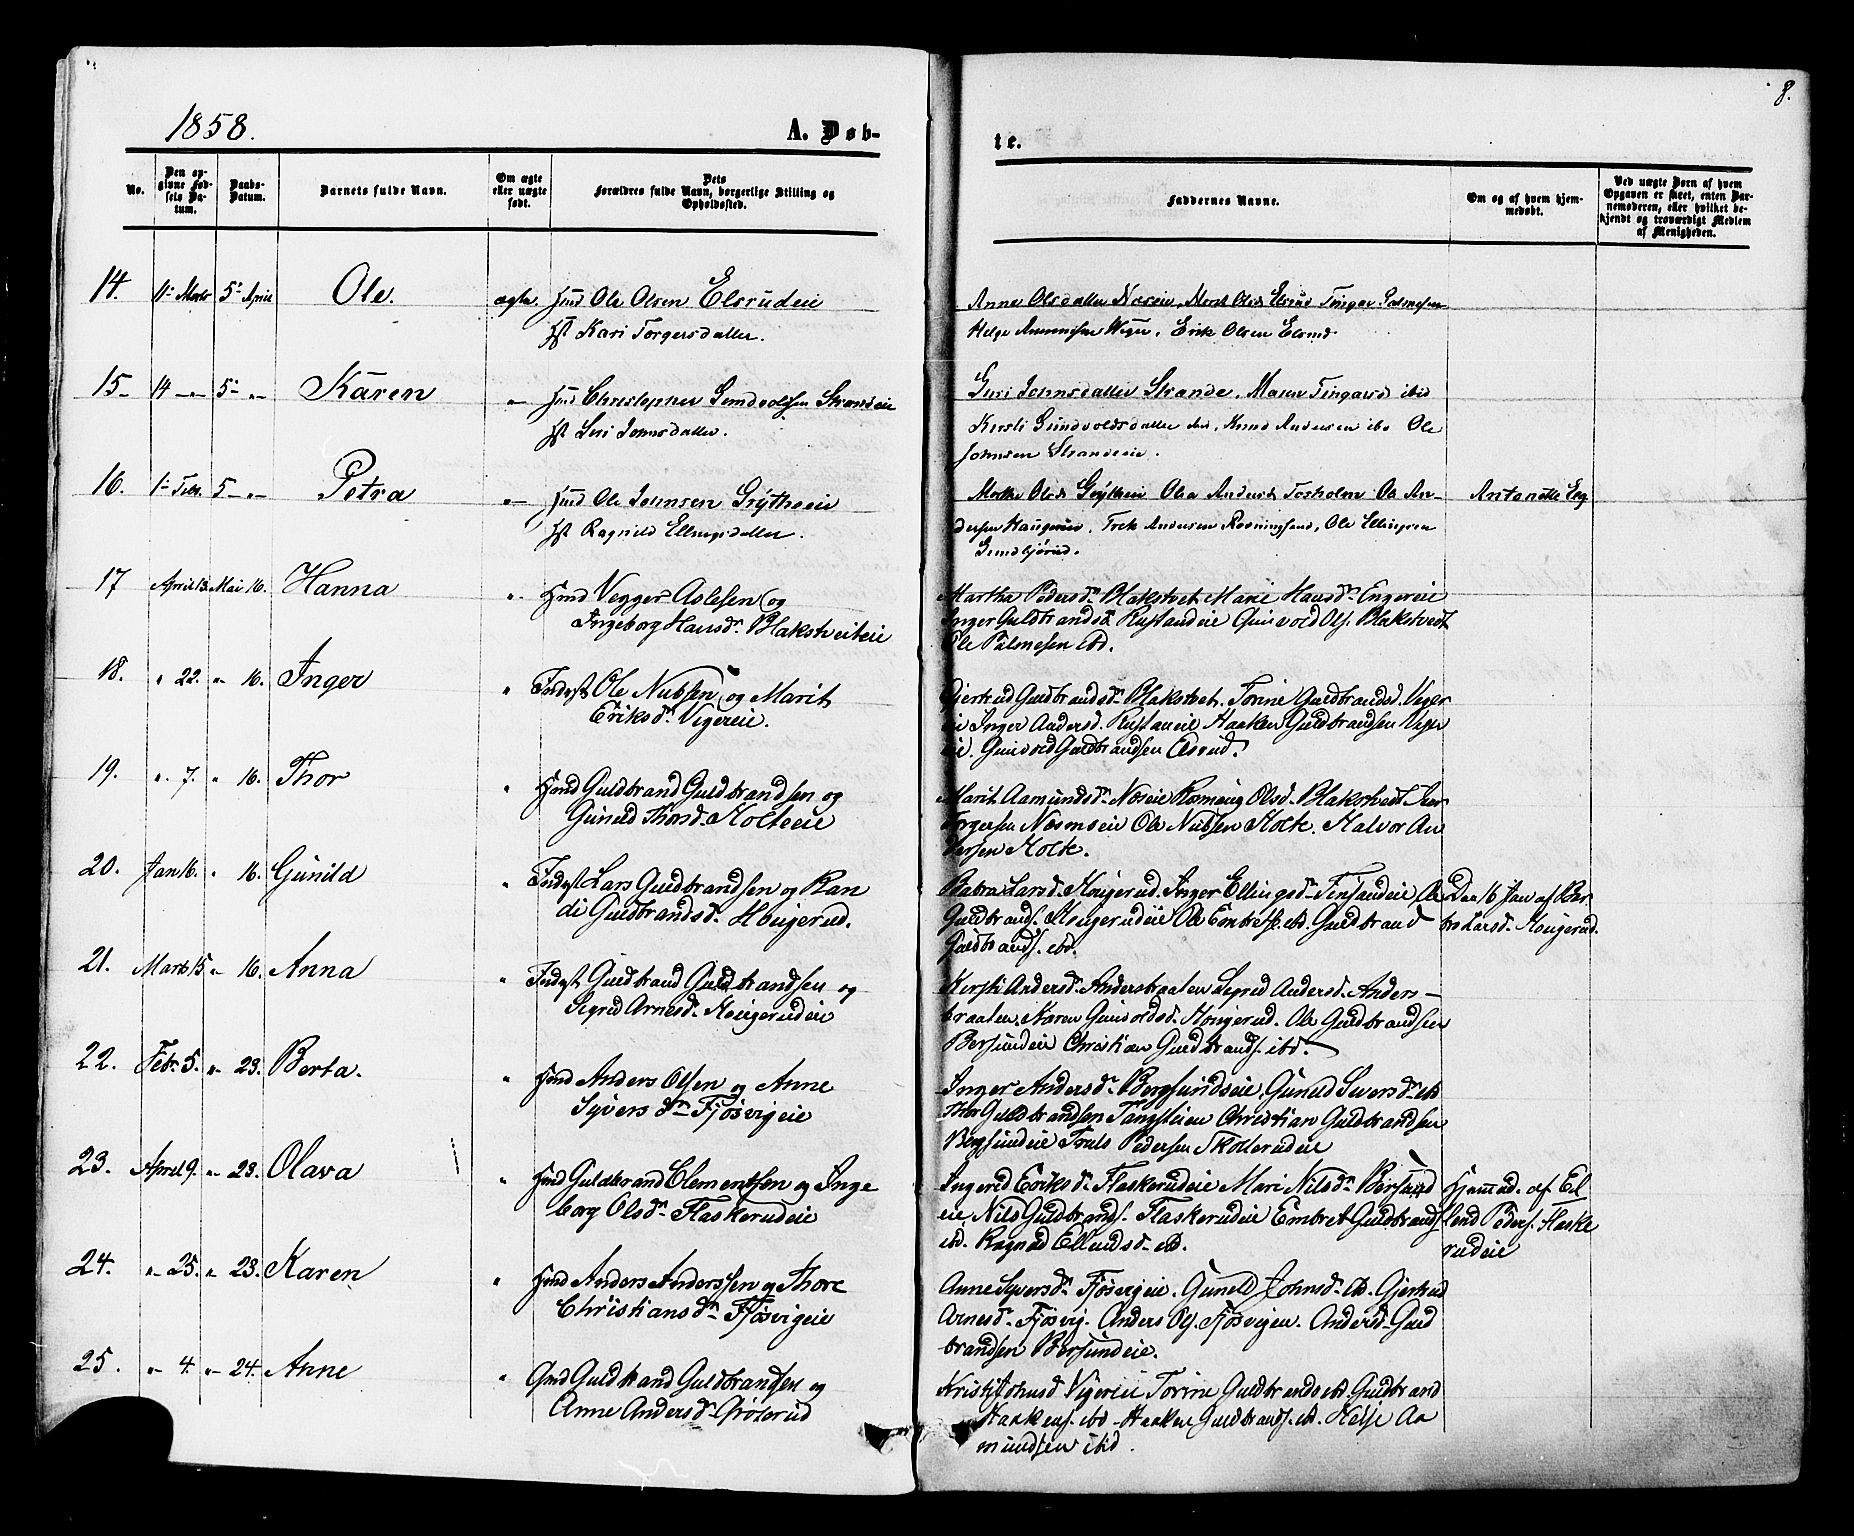 1858.
A. Døb-
te.
8.
No.
Den op-
givne Fød-
sels Da-
tum.
Daabs-
Datum.
Barnets fulde Navn.
Om ægte
eller uægte
født.
Dets
Forældres fulde Navn, borgerlige Stilling og
Opholdssted.
Faddernes Navne.
Om og af hvem hjem-
medøbt.
Ved uægte Born af hvem
Opgaven er skeet, enten Bar-
nemoderen, eller hvilket be-
kjendt og troværdigt Medlem
af Menigheden.
14. 11 Marts 5 April Ole. ægte. Hmd Ole Olsen Elsrudeie
Kari Torgersdatter.
Anne Olsdatter Noseie, Marit Olsd Elsrud
Helge Amundsen Weger, Erik Olsen Elsrud
15 14 5 Karen Hmd Christopher Gundvoldsen Strandeie
Siri Johnsdatter.
Guri Johnsdatter Strande, Maren ibid
Kirsti Gundvoldsdatter ibd, Knud Andersen ibd Ole
Johnsen Strandeie.
16. 1 Febr. 5 Petra Hmd Ole Johnsen Grytheeie
Ragnild Ellingsdatter.
Marthe Olsd Grytheeie Olea Andersd Tosholm Ole An-
dersen Haugerud, Andersen Ole Ellingsen
Antonette Eng
17 April 13. Mai 16. Hanna Hmd Vegger Aslesen og
Ingeborg Hansd. Blakstveiteie
Martha Pedersd. Blakstvet Marie Hansd. Engereie
Inger Guldbrandsd. Rustandeie Gunvold Ols. Blakstvedt
Ole Palmesen ibd.
18. " 22. " 16. Inger " Indst. Ole Nubsen og Marit
Eriksd. Vegereie.
Gjertrud Guldbrandsd. Blakstvet. Torine Guldbrandsd. Veger
eie Inger Andersd. Rustaneie Haaken Guldbrandsen Veger
eie. Gunvold Guldbrandsen Elsrud.
19. " 7. " 16. Thor " Hmd Guldbrand Guldbrandsen og
Gunild Thorsd. Holteeie
Marit Aamundsd. Noseie Romoug Olsd. Blakstvedt Iver
Torgersen Nosmoeie Ole Nubsen Holte. Halvor An
dersen Holte.
20. Jan 16. " 16. Gunild " Indst. Lars Guldbrandsen og Ran
di Guldbrandsd. Hougerud.
Babra Larsd. Hougerud. Inger Ellingsd. Finsandeie Ole
Guldbrands. Hougerudeie Ole Embrets. ibd. Guldbrand
Guldbrands. ibd.
Daa 16 Jan af Bar
bro Larsd. Hougerud.
21. Marts 15 " 16. Anna " Indst. Guldbrand Guldbrandsen og
Sigrid Arnesd. Hougerudeie
Kirsti Andersd. Anderstraalen Sigrid Andersd. Anders-
traalen. Karen Gunvoldsd. Hougerud. Ole Guldbrandsen
Bersundeie Christian Guldbrands. ibd.
22. Febr. 5. " 23. Berta. " Hmd Anders Olsen og Anne
Syversd. Fjösvigeie
Inger Andersd. Bergsundseie. Gunild Siversd. ibd
Thor Guldbrandsen Christian Guldbrandsen
Bergsundeie Truls Pedersen Skollerudeie
23. April 9. " 23. Olava " Hmd Guldbrand Clementsen og Inge
borg Olsd. Flaskerudeie
Ingerid Eriksd. Flaskerudeie Mari Nilsd. Bersund
eie, Nils Guldbrands. Flaskerudeie Embret Guldbrands.
ibd. Ragnild Ellendsd. ibd.
Hjemmed. af El
lend Peders. Flaske
rudeie
24. " 25. " 23. Karen " Hmd Anders Anderssen og Thore
Christiansd. Fjösvigeie
Anne Syversd. Fjösvigeie. Gunild Johnsd. ibd. Gjertrud
Arnesd. Fjösvig. Anders Ols. Fjösvigen. Anders Guld
brandsen Bersundeie.
25. " 4. " 24. Anne " Gmd Guldbrand Guldbrandsen og
Anne Andersd. Gröterud
Kristi Johnsd Vegereie Torine Guldbrandsd. ibd. Guldbrand
Haakens. ibd. Haaken Guldbrands. ibd. Helje Aa
mundsen ibid.